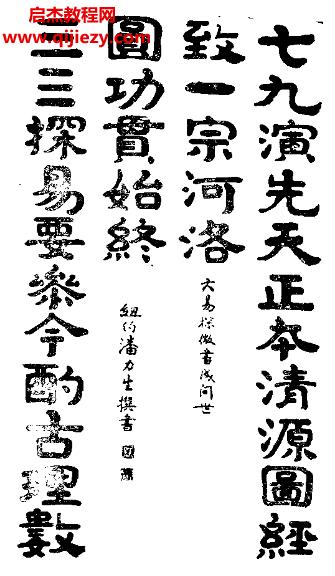 启杰教程网
www.qijiezy.com
七九演先天正本清源圖經
致一宗河洛
大易探微書成问世
二三探易要參今酌古理數
圓功貫始終
紐约潘力生撰書